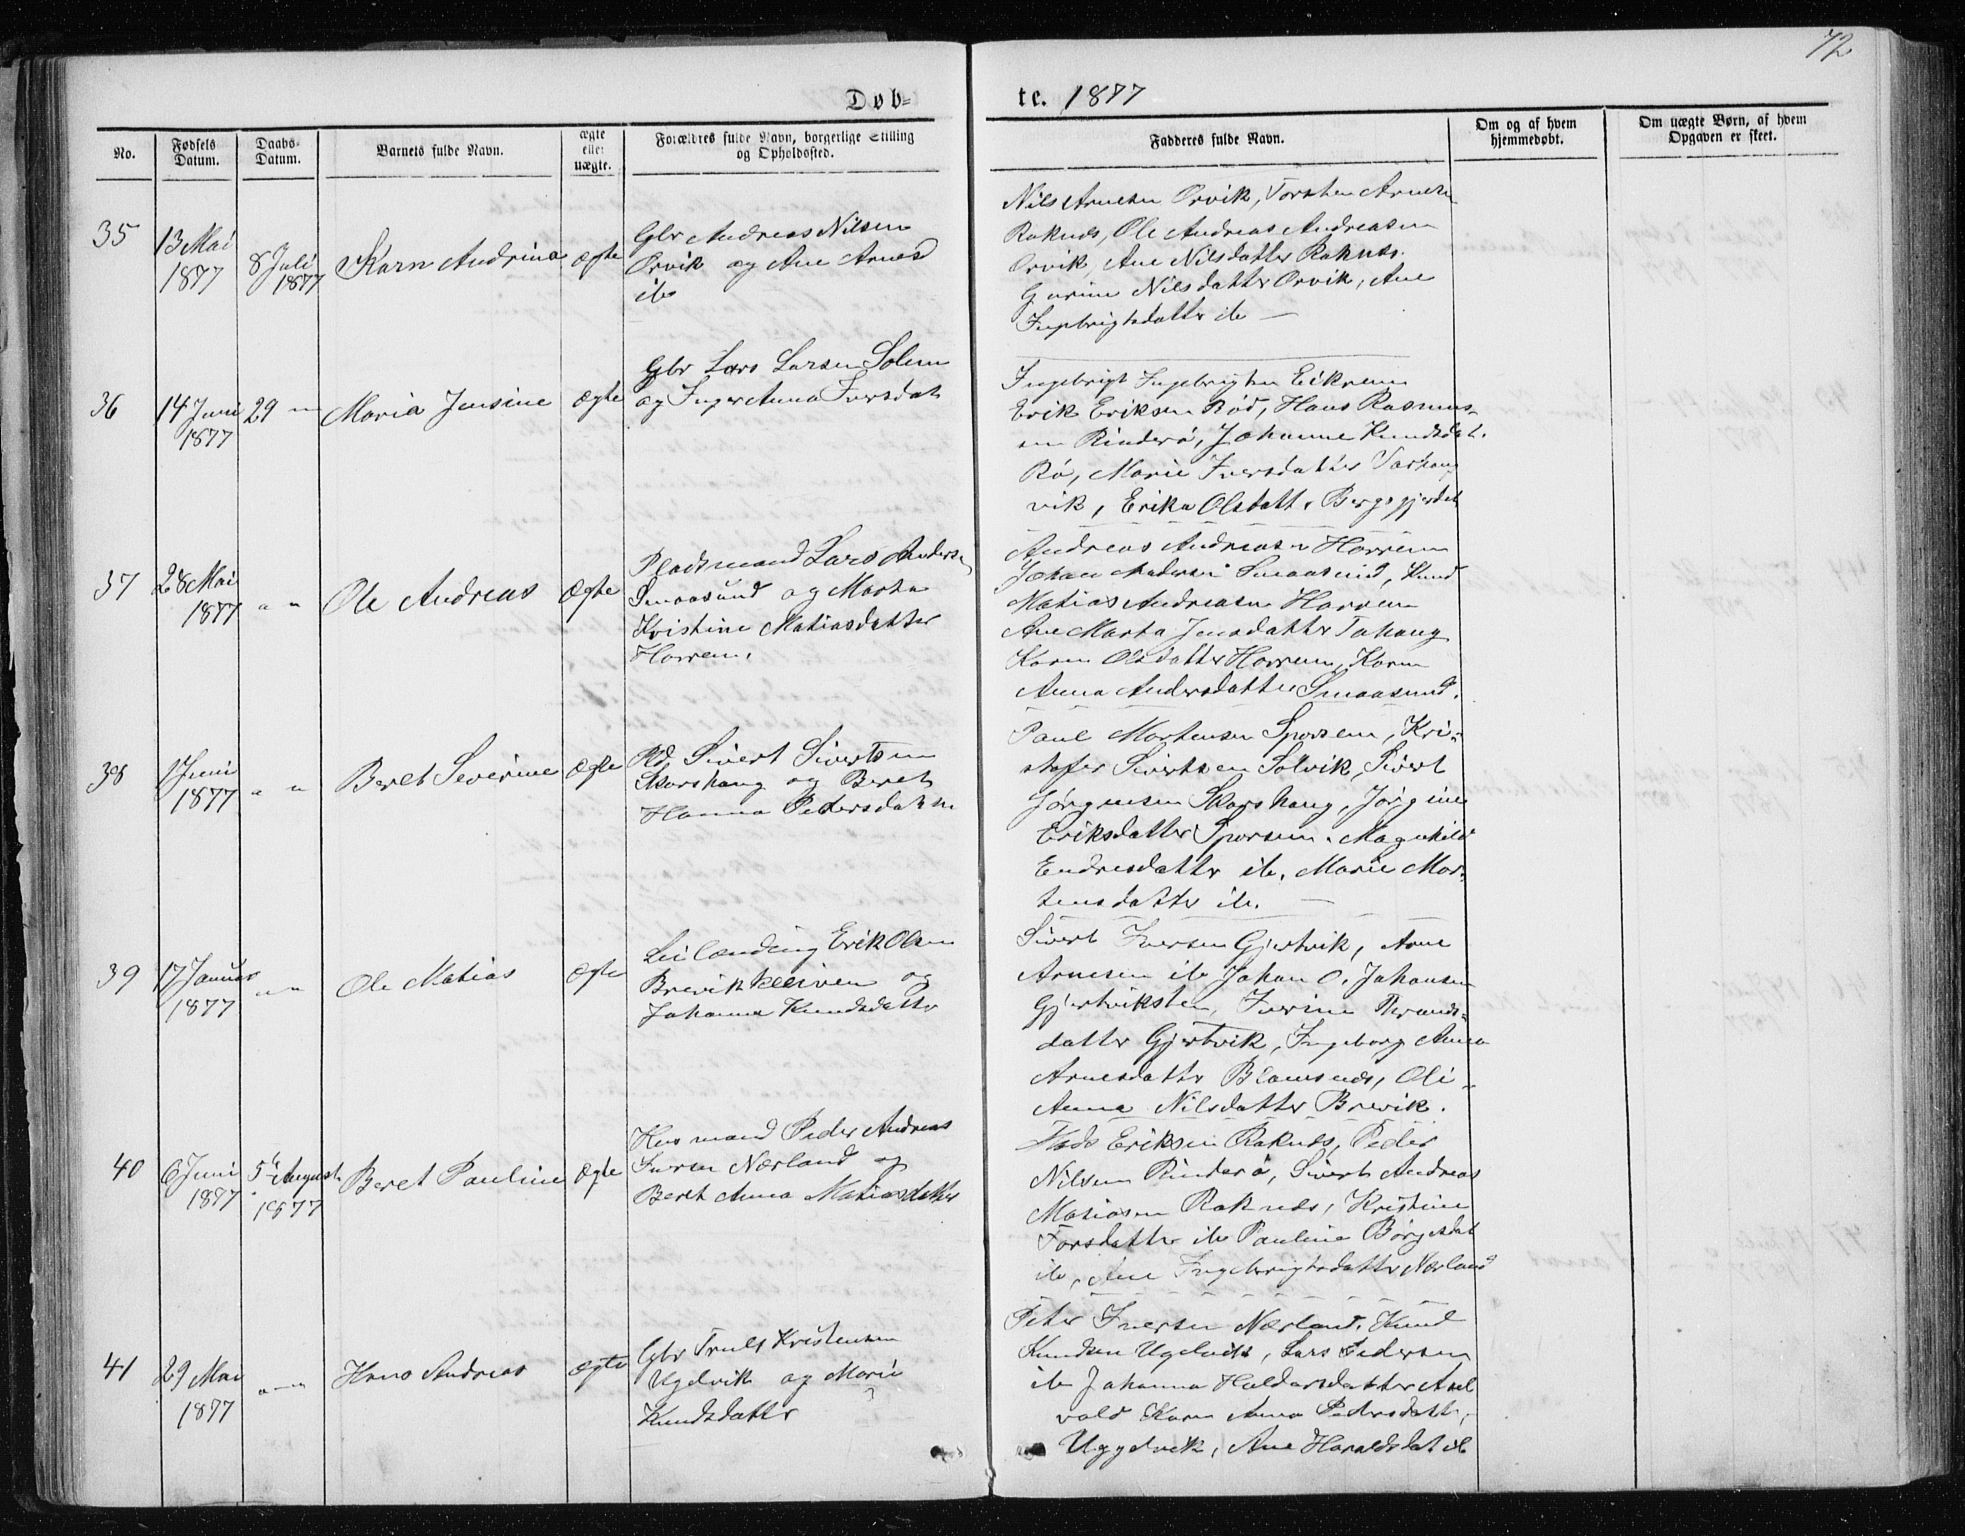 72
Døb-
te. 1877
No.
Fødsels Datum.
Daabs-Datum.
Barnets fulde Navn.
ægte eller uægte.
Forældres fulde Navn, borgerlige Stilling og Opholdssted.
Fadderes fulde Navn.
Om og af hvem hjemmedøbt.
Om uægte Børn, af hvem Opgaven er skeet.
35
13 Mai
1877
8 Juli
1877
Karn Andrina
ægte
Gbr Andreas Nilsen
Orvik og Ane Arnesd
ib
Nils Arnesen Orvik, Torsten Arnesen
Raknes, Ole Andreas Andreasen
Orvik, Ane Nilsdatter Raknes.
Gurine Nilsdatter Orvik, Ane
Ingebrigtsdatter ib —
36
14 Juni
1877
29 "
Maria Jensine
ægte
Gbr Lars Larsen Solem
og Inger Anna Iversdat
Ingebrigt Ingebrigtsen Eikrem
Erik Eriksen Rød, Hans Rasmus-
sen Rinderø, Johanne Knudsdat.
Rø, Marie Iversdatter Varhaug
vik, Erika Olsdatt. Bergsgjerdet
37
28 Mai
1877
" "
Ole Andreas
Ægte
Pladsmand Lars Anders.
Smaasund og Marta
Kristine Matiasdatter
Horrem.
Andreas Andreasen Horrem
Johan Andersen Smaasund, Knud
Matias Andreasen Horrem
Ane Marta Jensdatter Tahaug
Karen Olsdatter Horrem, Karen
Anna Andersdatter Smaasund.
38
1 Juni
1877
" "
Beret Severine
Ægte
Pld, Sivert Sivertsen
Skarshaug og Beret
Hanna Pedersdatter
Paul Mortensen Sporsem, Kri-
stofer Sivertsen Solvik, Sivert
Jørgensen Skarshaug, Jørgine
Eriksdatter Sporsem. Magnhild
Endresdatter ib. Marie Mor-
tensdatter ib. —
39
17 Januar
1877
" "
Ole Matias
Ægte
Leilænding Erik Olsen
Brevik Kleiven og
Johanna Knudsdatter
Sivert Iversen Gjertvik, Arne
Arnesen ib Johan O. Johansen
Gjertviksten, Iverine Trends-
datter Gjertvik, Ingeborg Anna
Arnesdatter Blomsnes, Oli-
Anna Nilsdatter Brevik.
40
6 Juni
1877
5te August
1877
Beret Pauline
Ægte
Husmand Peder Andreas
Iversen Nærland og
Beret Anna Matiasdatter
Mads Eriksen Raknes, Peder
Nilsen Rinderø, Sivert Andreas
Matiasen Raknes, Kristine
Larsdatter ib Pauline Børgesdat
ib, Ane Ingebrigtsdatter Nærland
41
29 Mai
1877
" "
Hans Andreas
ægte
Gbr Truls Kristensen
Ugelvik og Marie
Knudsdatter
Peter Iversen Nærland. Knud
Knudsen Ugelvik, Lars Pedersen
ib Johanna Haldorsdatter Aal
vold Karen Anna Pedersdatt.
Uggelvik, Ane Haraldsdat ib